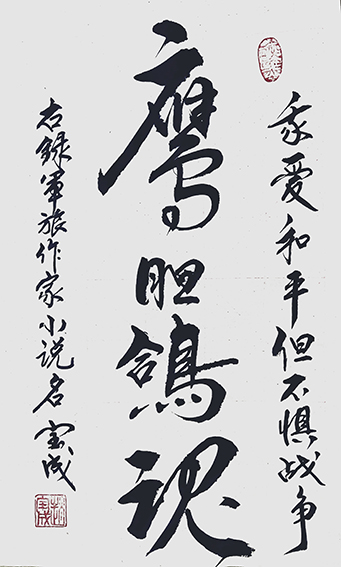 我爱和平但不惧战争
鹰胆鸽魂
右録軍旅作家小说名宝成